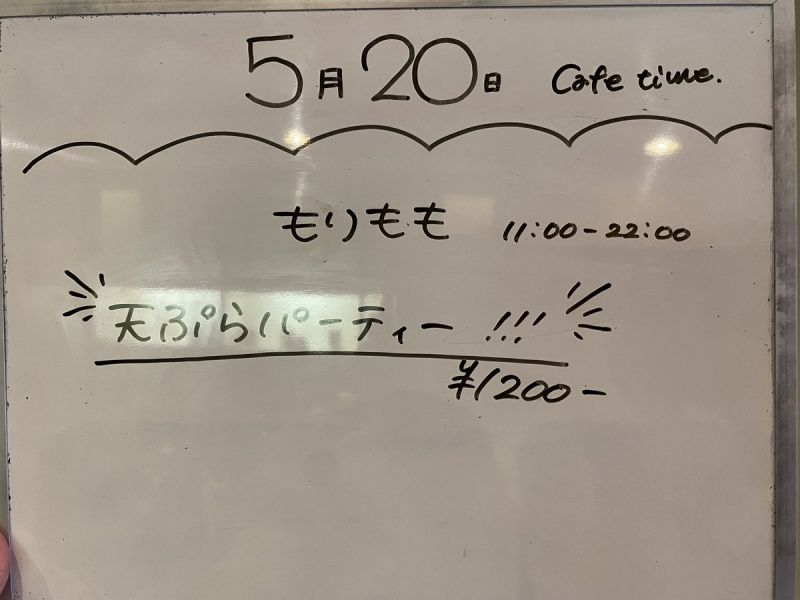 5月20日 Cafe time.
もりもも 11:00-22:00
天ぷらパーティー!!!
¥1200-